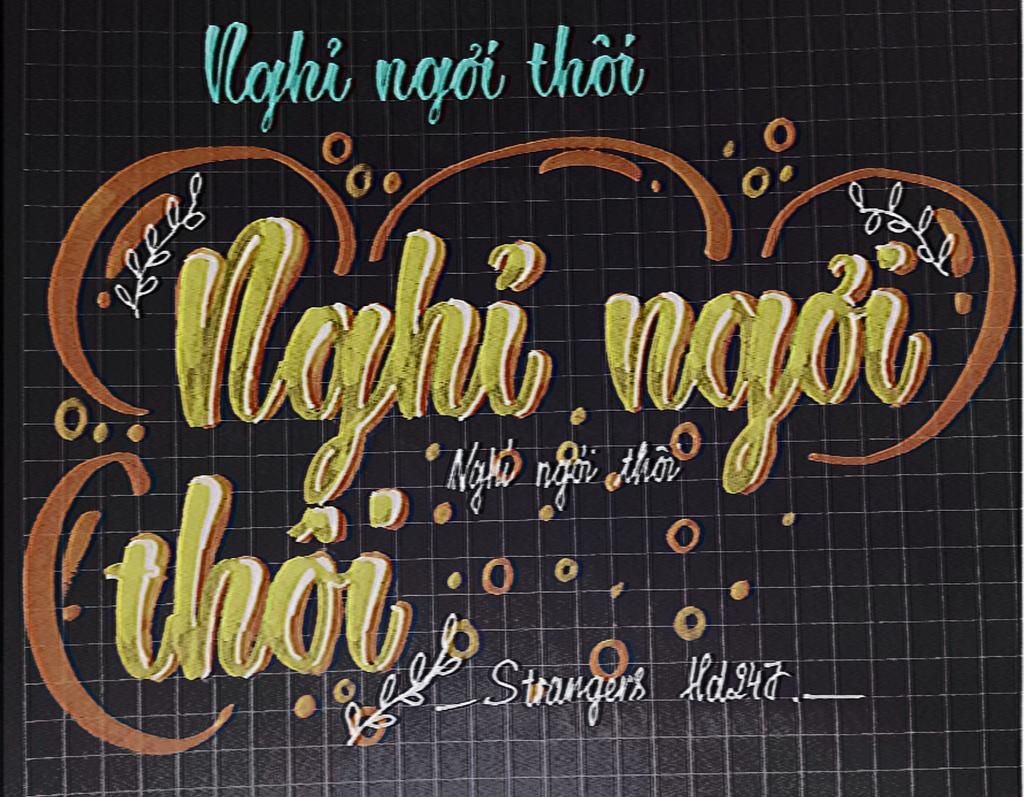 Nghỉ ngơi thôi
Nghỉ ngơi
Nghỉ ngơi thôi
thôi
Strangers Hd247.